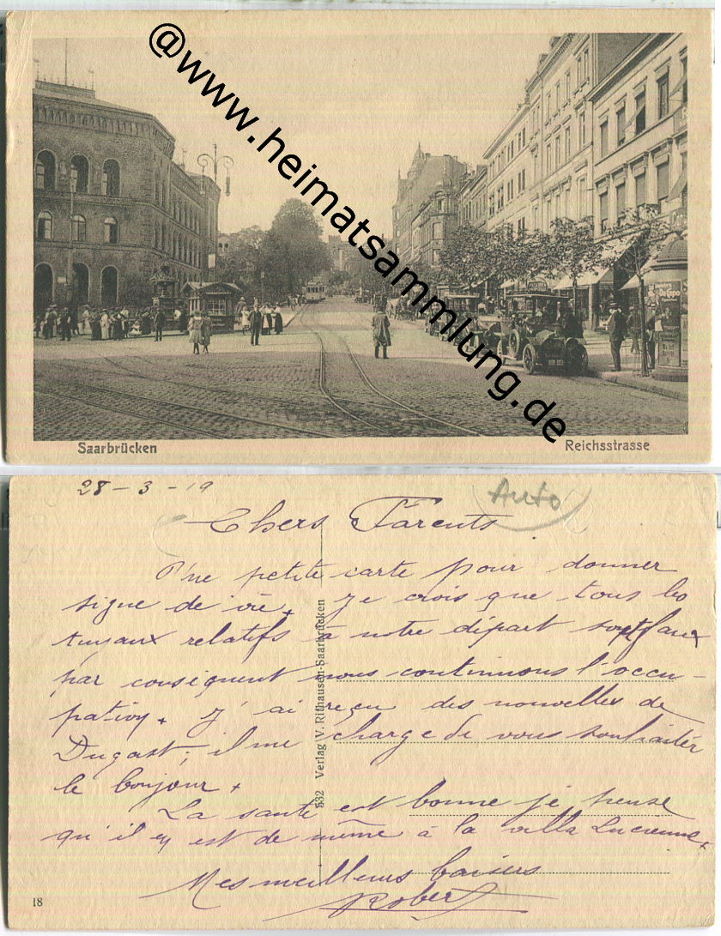 @www.heimatsammlung.de
Saarbrücken
Reichsstrasse
28-3-19
Auto
Chers Parents
Une petite carte pour donner
signe de vie. Je crois que tous les
tuyaux relatifs à notre départ sont faux
par conséquent nous continuons l'occu-
pation. J'ai reçu des nouvelles de
Dugast; il me charge de vous souhaiter
le bonjour.
La santé est bonne je pense
qu'il en est de même à la villa Lucienne.
Mes meilleurs baisers
Robert
532 Verlag V. Rifhausen-Saarbrücken
18